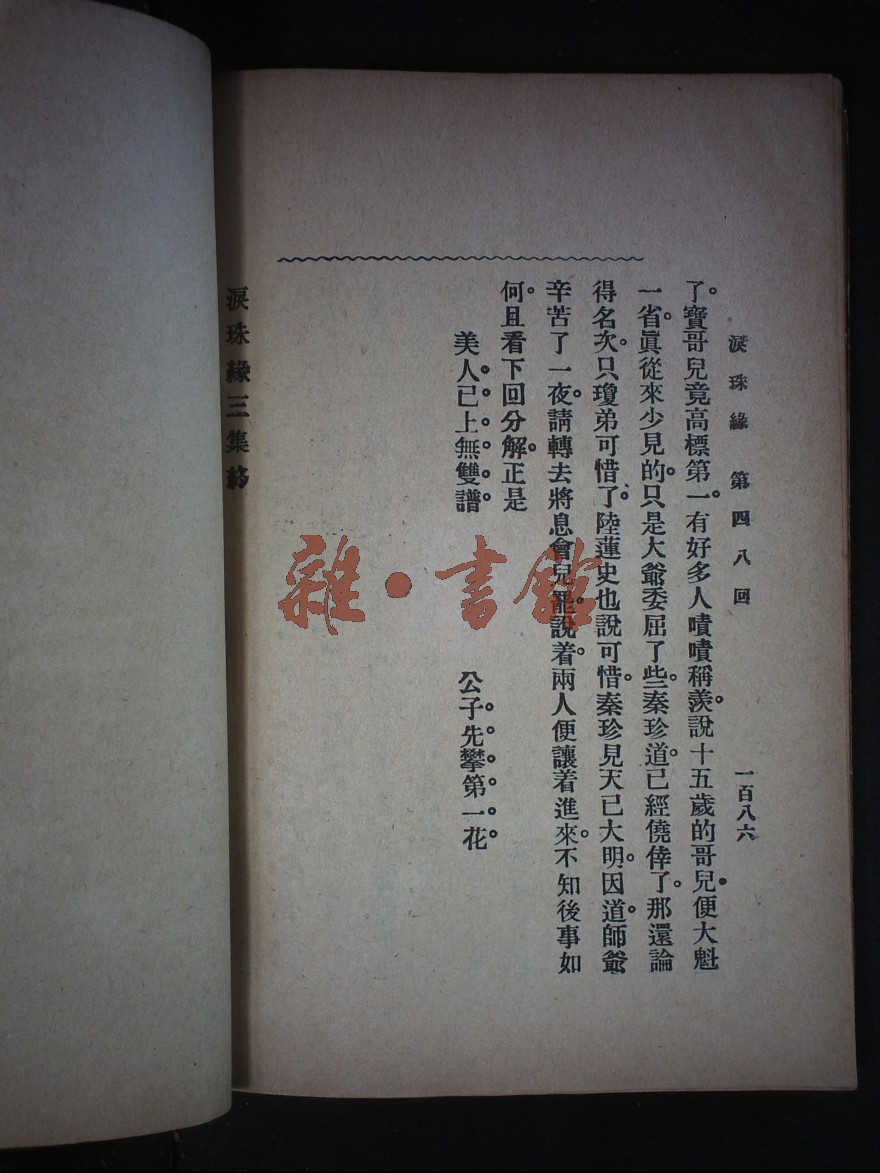 淚珠緣　第四八回　一百八六
了。寶哥兒竟高標第一。有好多人嘖嘖稱羨。說十五歲的哥兒。便大魁
一省。眞從來少見的。只是大爺委屈了些。秦珍道。已經僥倖了。那還論
得名次。只瓊弟可惜了。陸蓮史也說可惜。秦珍見天已大明。因道。師爺
辛苦了一夜。請轉去將息會兒罷。說着。兩人便讓着進來。不知後事如
何。且看下回分解。正是
美人已上無雙譜　公子先攀第一花
淚珠緣三集終
雜·書館